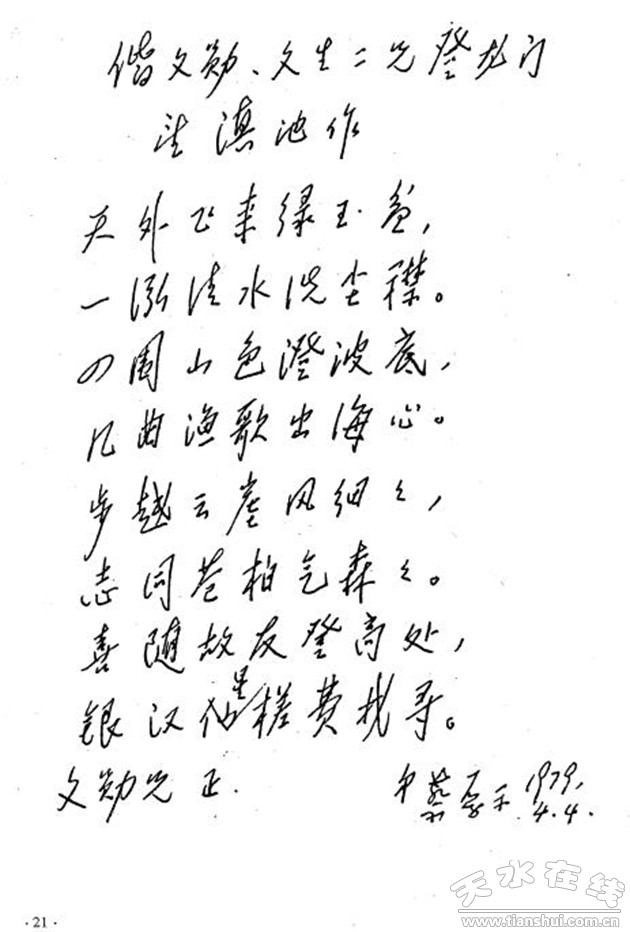 偕文勋、文生二兄登龙门
望滇池作
天外飞来绿玉盆，
一泓清水洗尘襟。
四围山色澄波底，
几曲渔歌出海心。
步越云崖风细々，
志同苍柏气森々。
喜随故友登高处，
星
银汉仙槎费找寻。
文勋兄正. 弟蔡厚示 1979.
4.4.
天水在线
www.tianshui.com.cn
·21·